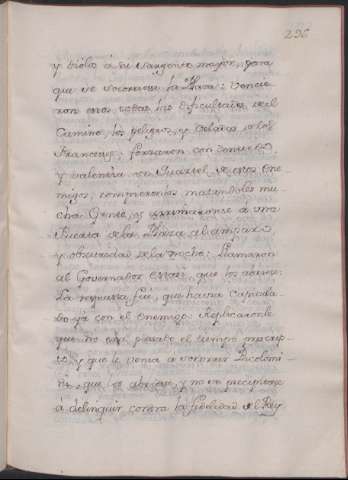 296
y diolos á su Sargento mayor, para
que se socorriese la Plaza: Vencie-
ron estos todas las dificultades del
Camino, los peligros, y
Franceses; forzaron con denuedo,
y valentia un Quartel de esos Ene-
migos, rompieronlos matandoles mu-
cha Gente, y arrimaronse á una
Puerta de la Plaza al amparo
y obscuridad de la noche: Llamaron
al Governador que los abriese:
La repuesta fué, que havia Capitula-
do ya con el enemigo: Replicaronle
que no era pasado el tiempo prescrip-
to, y que le venia a socorrer Picolomi-
ni, que los abriese, y no se precipitase
á delinquir contra la fidelidad del Rey